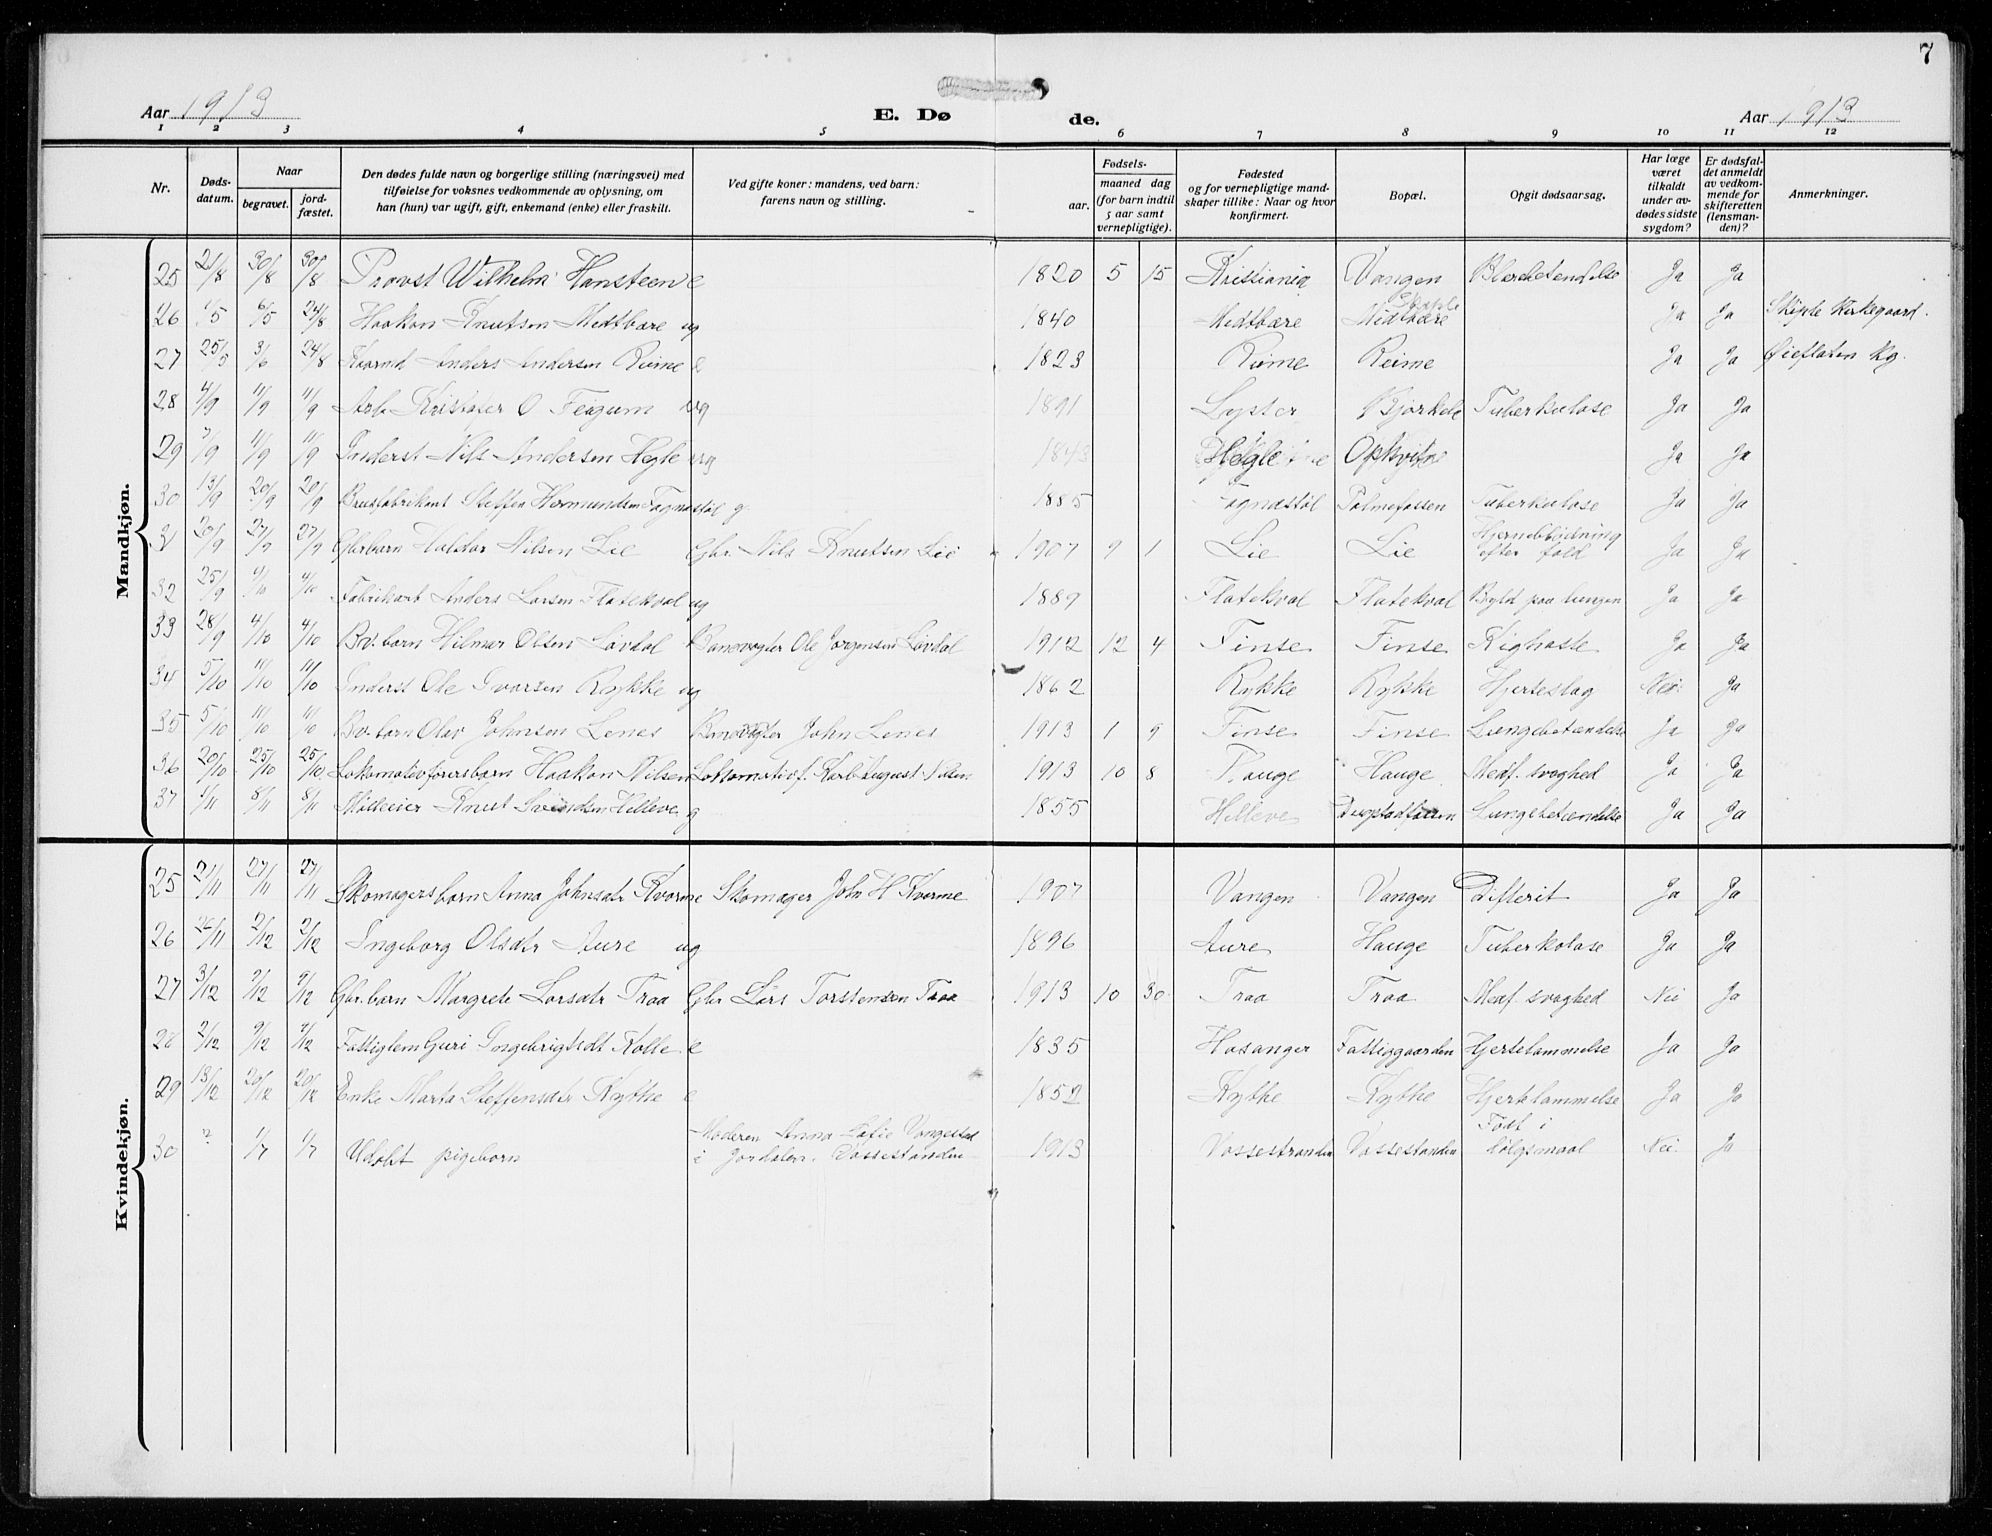 7
Aar 1913 E. Dø de. Aar 1913
1 2 3 4 5 6 7 8 9 10 11 12
Nr. Døds-datum. Naar begravet. jord-fæstet. Den dødes fulde navn og borgerlige stilling (næringsvei) med tilføielse for voksnes vedkommende av oplysning, om han (hun) var ugift, gift, enkemand (enke) eller fraskilt. Ved gifte koner: mandens, ved barn: farens navn og stilling. Fødsels- aar. maaned dag (for barn indtil 5 aar samt vernepligtige). Fødested og for vernepligtige mand-skaper tillike: Naar og hvor konfirmert. Bopæl. Opgit dødsaarsag. Har læge været tilkaldt under av-dødes sidste sygdom? Er dødsfal-det anmeldt av vedkom-mende for skifteretten (lensman-den)? Anmerkninger.
Mandkjøn.
25 21/8 30/8 30/8 Provst Wilhelm Hansteen e 1820 5 15 Kristiania Vangen Blærebetendelse Ja Ja
26 1/5 6/5 24/8 Haakon Knutsen Medtbøre ug 1840 Medtbære Medtbære Ja Ja Skiple Kirkegaard.
27 25/5 3/6 24/8 Anders Andersen Rime e 1823 Rime Reime Ja Ja Øieflaten Kg.
28 4/9 11/9 11/9 Arb. Kristofer O Feigum ug 1891 Lyster Bjørkele Tuberkulose Ja Ja
29 7/9 11/9 11/9 Inderst Nils Andersen Hegle ug 1843 Hegle Opkvitne Ja Ja
30 13/9 20/9 20/9 Brusfabrikant Steffen Hermundsen Fagnastøl g. 1885 Fagnastøl Palmefossen Tuberkulose Ja Ja
31 20/9 27/9 27/9 Gbr.barn Haldor Nilsen Lie Gbr. Nils Knutsen Lie 1907 9 1 Lie Lie Hjerneblødning efter fald Ja Ja
32 25/9 4/10 4/10 Fabrikarb Anders Larsen Flatekval ug 1889 Flatekval Flatekval Byld paa lungen Ja Ja
33 28/9 4/10 4/10 Bv.barn Hilmar Olsen Løvdal Banevogter Ole Jørgensen Løvdal 1912 12 4 Finse Finse Kighoste Ja Ja
34 5/10 11/10 11/10 Inderst Ole Ivarsen Rykke ug 1862 Rykke Rykke Hjerteslag Nei Ja
35 5/10 11/10 11/10 Bv.barn Olav Johnsen Lenes Banevogter John Lenes 1913 1 9 Finse Finse Lungebetændelse Ja Ja
36 20/10 25/10 25/10 Lokomotivførersbarn Haakon Nilsen Lokomotivf. Karl August Nilsen 1913 10 8 Hauge Hauge Medf. svaghed Ja Ja
37 1/11 8/11 8/11 Mølleeier Knut Svendsen Helleve g 1855 Helleve Lungebetændelse Ja Ja
Kvindekjøn.
25 21/11 27/11 27/11 Skomagersbarn Anna Johnsdtr Kvarme Skomager John H Kvarme 1907 Vangen Vangen Difterit Ja Ja
26 26/11 2/12 2/12 Ingeborg Olsdtr Aure ug 1896 Aure Hauge Tuberkolose Ja Ja
27 3/12 9/12 9/12 Gbr.barn Margrete Larsdtr Traa Gbr Lars Torstensen Traa 1913 10 30 Traa Traa Medf. svaghed Nei Ja
28 2/12 9/12 9/12 Fattiglem Guri Ingebrigtsdt Kolle e 1835 Hosanger Fattiggaarden Hjertelammelse Ja Ja
29 13/12 20/12 20/12 Enke Marta Steffensdtr Kythe e 1852 Kythe Kythe Hjertelammelse Ja Ja
30 ? 1/7 1/7 Udøbt pigebarn Moderen Anna Sofie Vangestad i Jordalen. Vossestranden 1913 Vossestranden Vossestranden Født i dølgsmaal Nei Ja